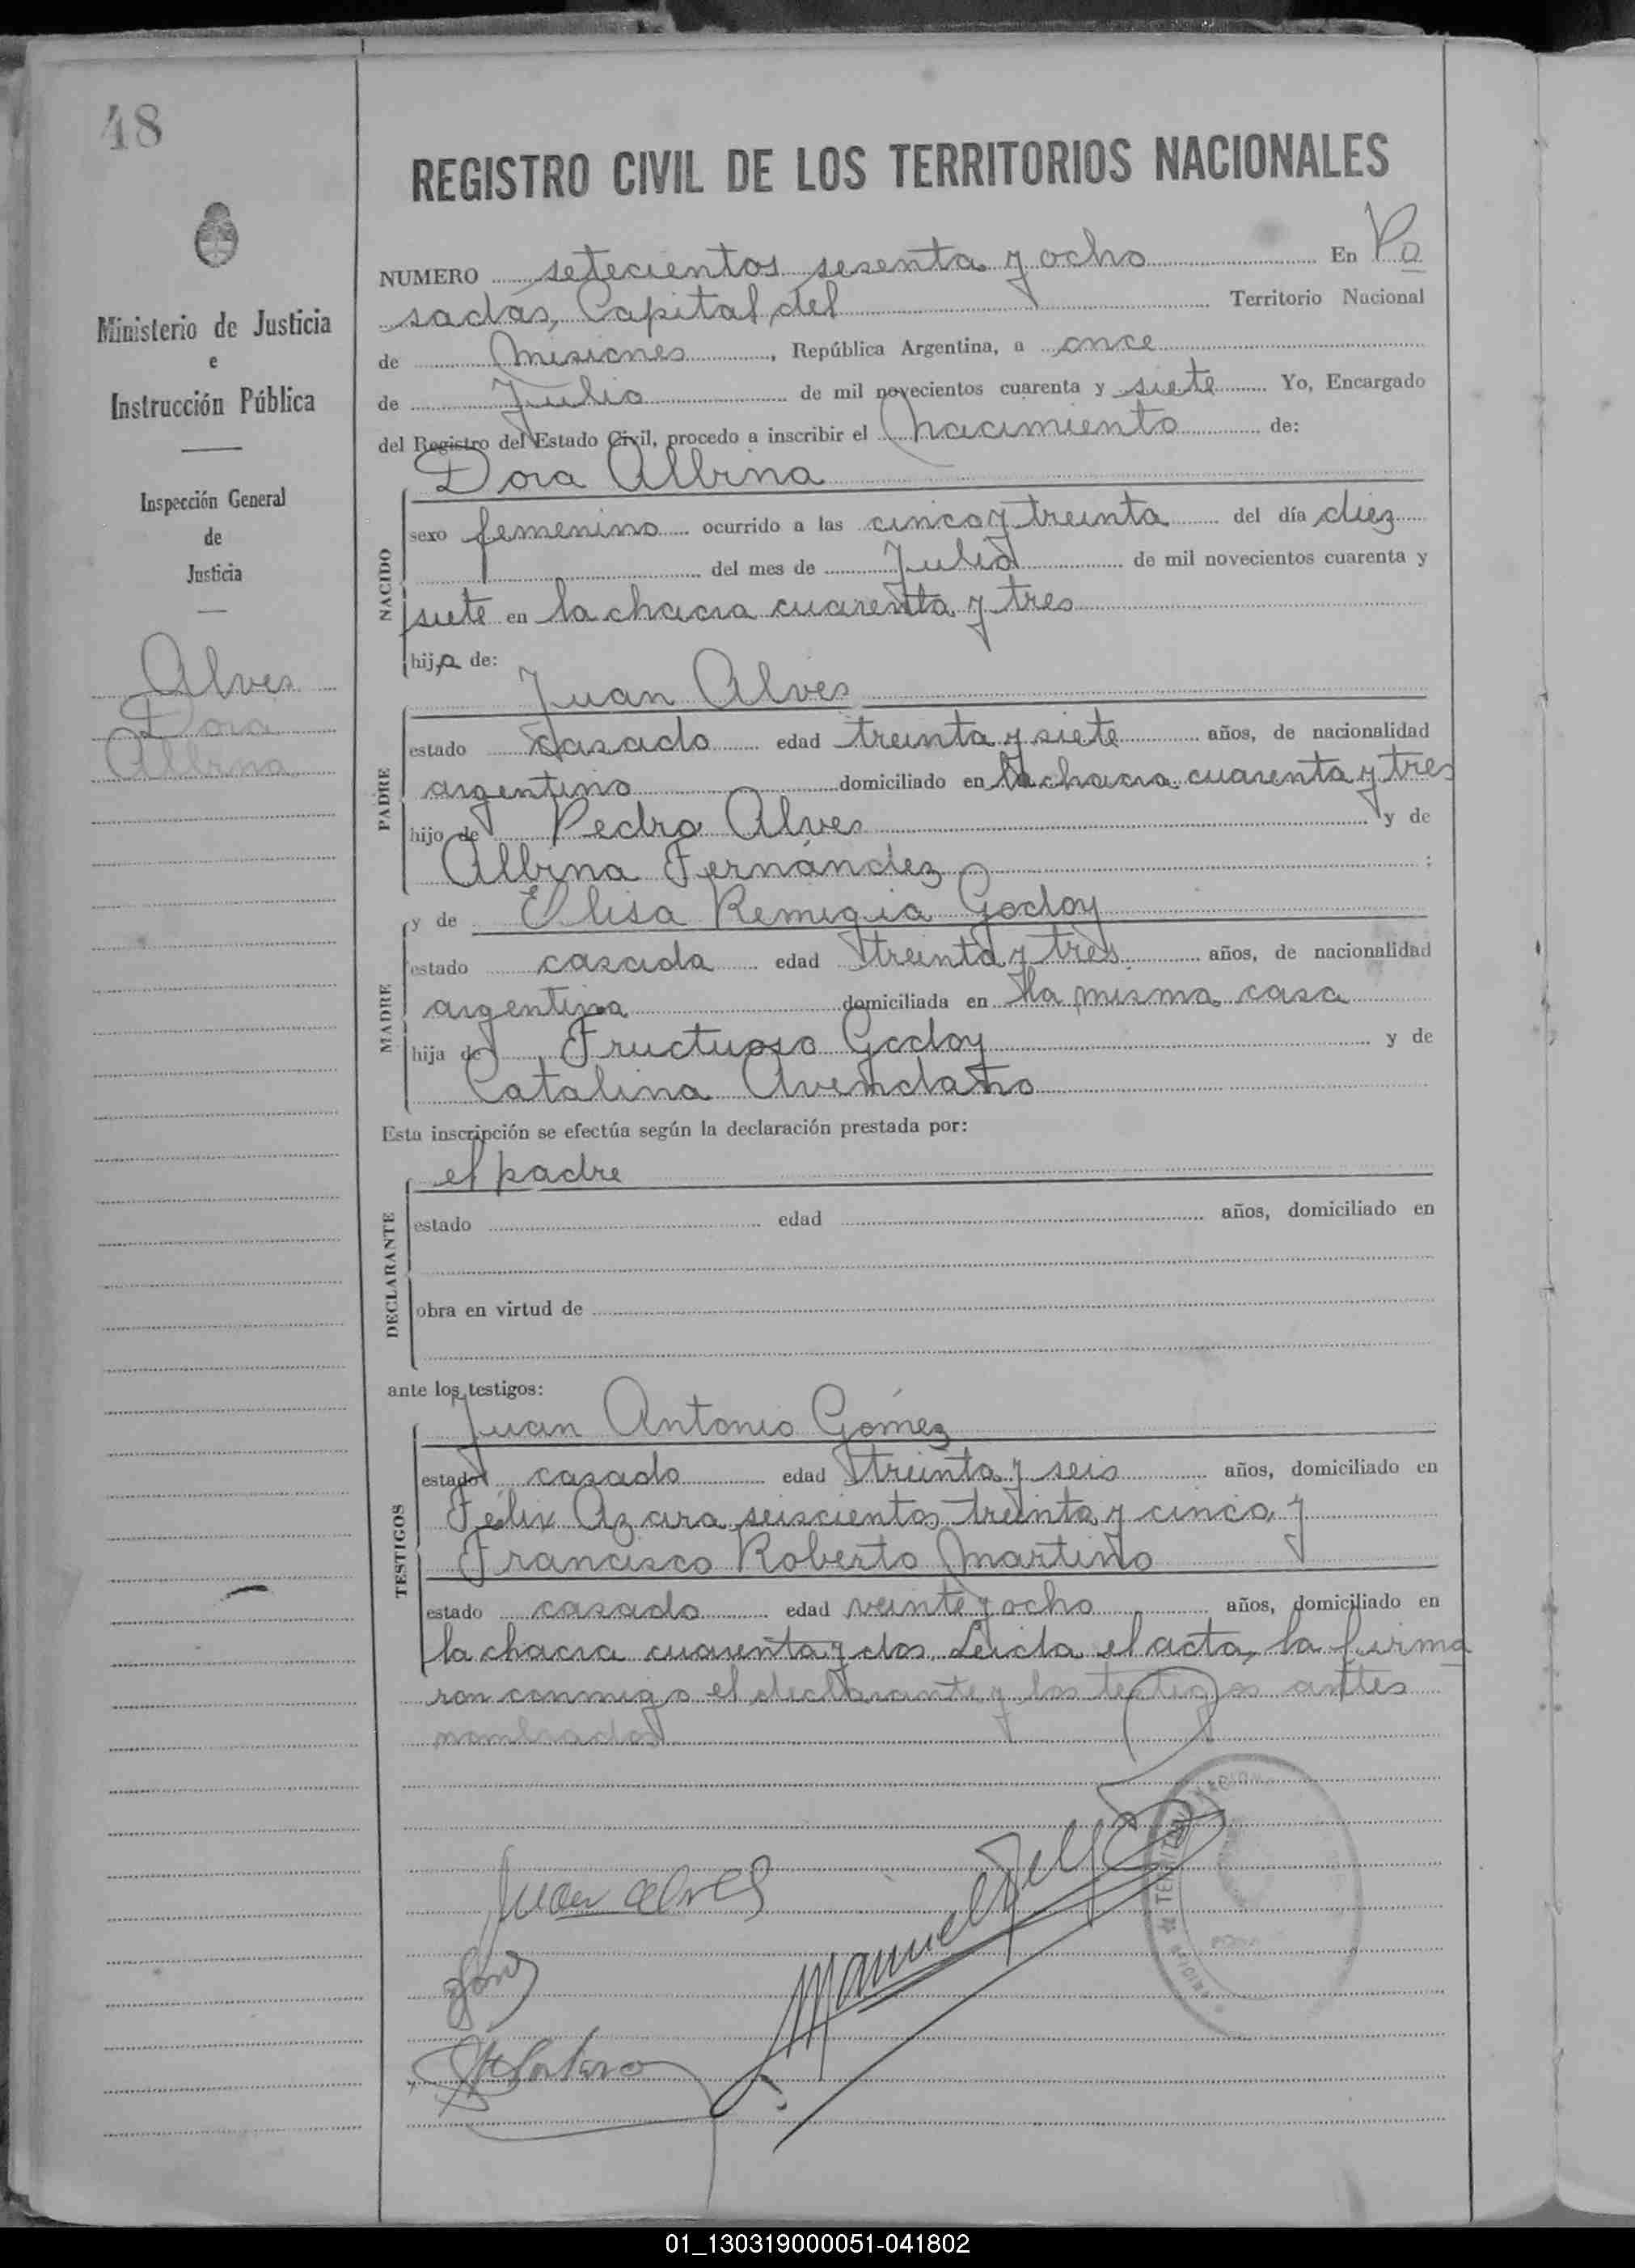 48
Ministerio de Justicia
e
Instrucción Pública
Inspección General
de
Justicia
Alves
Dora
Albina
REGISTRO CIVIL DE LOS TERRITORIOS NACIONALES
NUMERO setecientos sesenta y ocho En Po
sadas, Capital del Territorio Nacional
de Misiones, República Argentina, a once
de Julio de mil novecientos cuarenta y siete Yo, Encargado
del Registro del Estado Civil, procedo a inscribir el nacimiento de:
Dora Albina
NACIDO
sexo femenino ocurrido a las cinco y treinta del día diez
del mes de Julio de mil novecientos cuarenta y
siete en la chacra cuarenta y tres
hija de:
Juan Alves
PADRE
estado casado edad treinta y siete años, de nacionalidad
argentino domiciliado en la chacra cuarenta y tres
hijo de Pedro Alves y de
Albina Fernández :
y de Elisa Remigia Godoy
MADRE
estado casada edad treinta y tres años, de nacionalidad
argentina domiciliada en la misma casa
hija de Fructuoso Godoy y de
Catalina Avendaño
Esta inscripción se efectúa según la declaración prestada por:
el padre
DECLARANTE
estado edad años, domiciliado en
obra en virtud de
ante los testigos:
Juan Antonio Gómez
TESTIGOS
estado casado edad treinta y seis años, domiciliado en
Félix Azara seiscientos treinta y cinco y
Francisco Roberto Martino
estado casado edad veinte y ocho años, domiciliado en
la chacra cuarenta y dos. Leida el acta, la firma
ron conmigo el declarante y los testigos antes
nombrados
Juan alves
Manuel
01_130319000051-041802